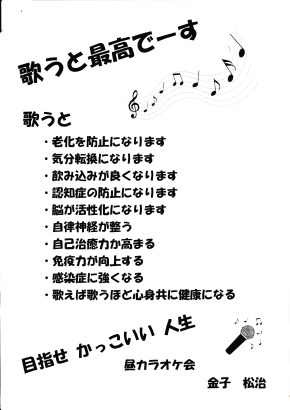 歌うと最高でーす
歌うと
・老化を防止になります
・気分転換になります
・飲み込みが良くなります
・認知症の防止になります
・脳が活性化になります
・自律神経が整う
・自己治癒力か高まる
・免疫力が向上する
・感染症に強くなる
・歌えば歌うほど心身共に健康になる
目指せ かっこいい 人生
昼カラオケ会
金子 松治